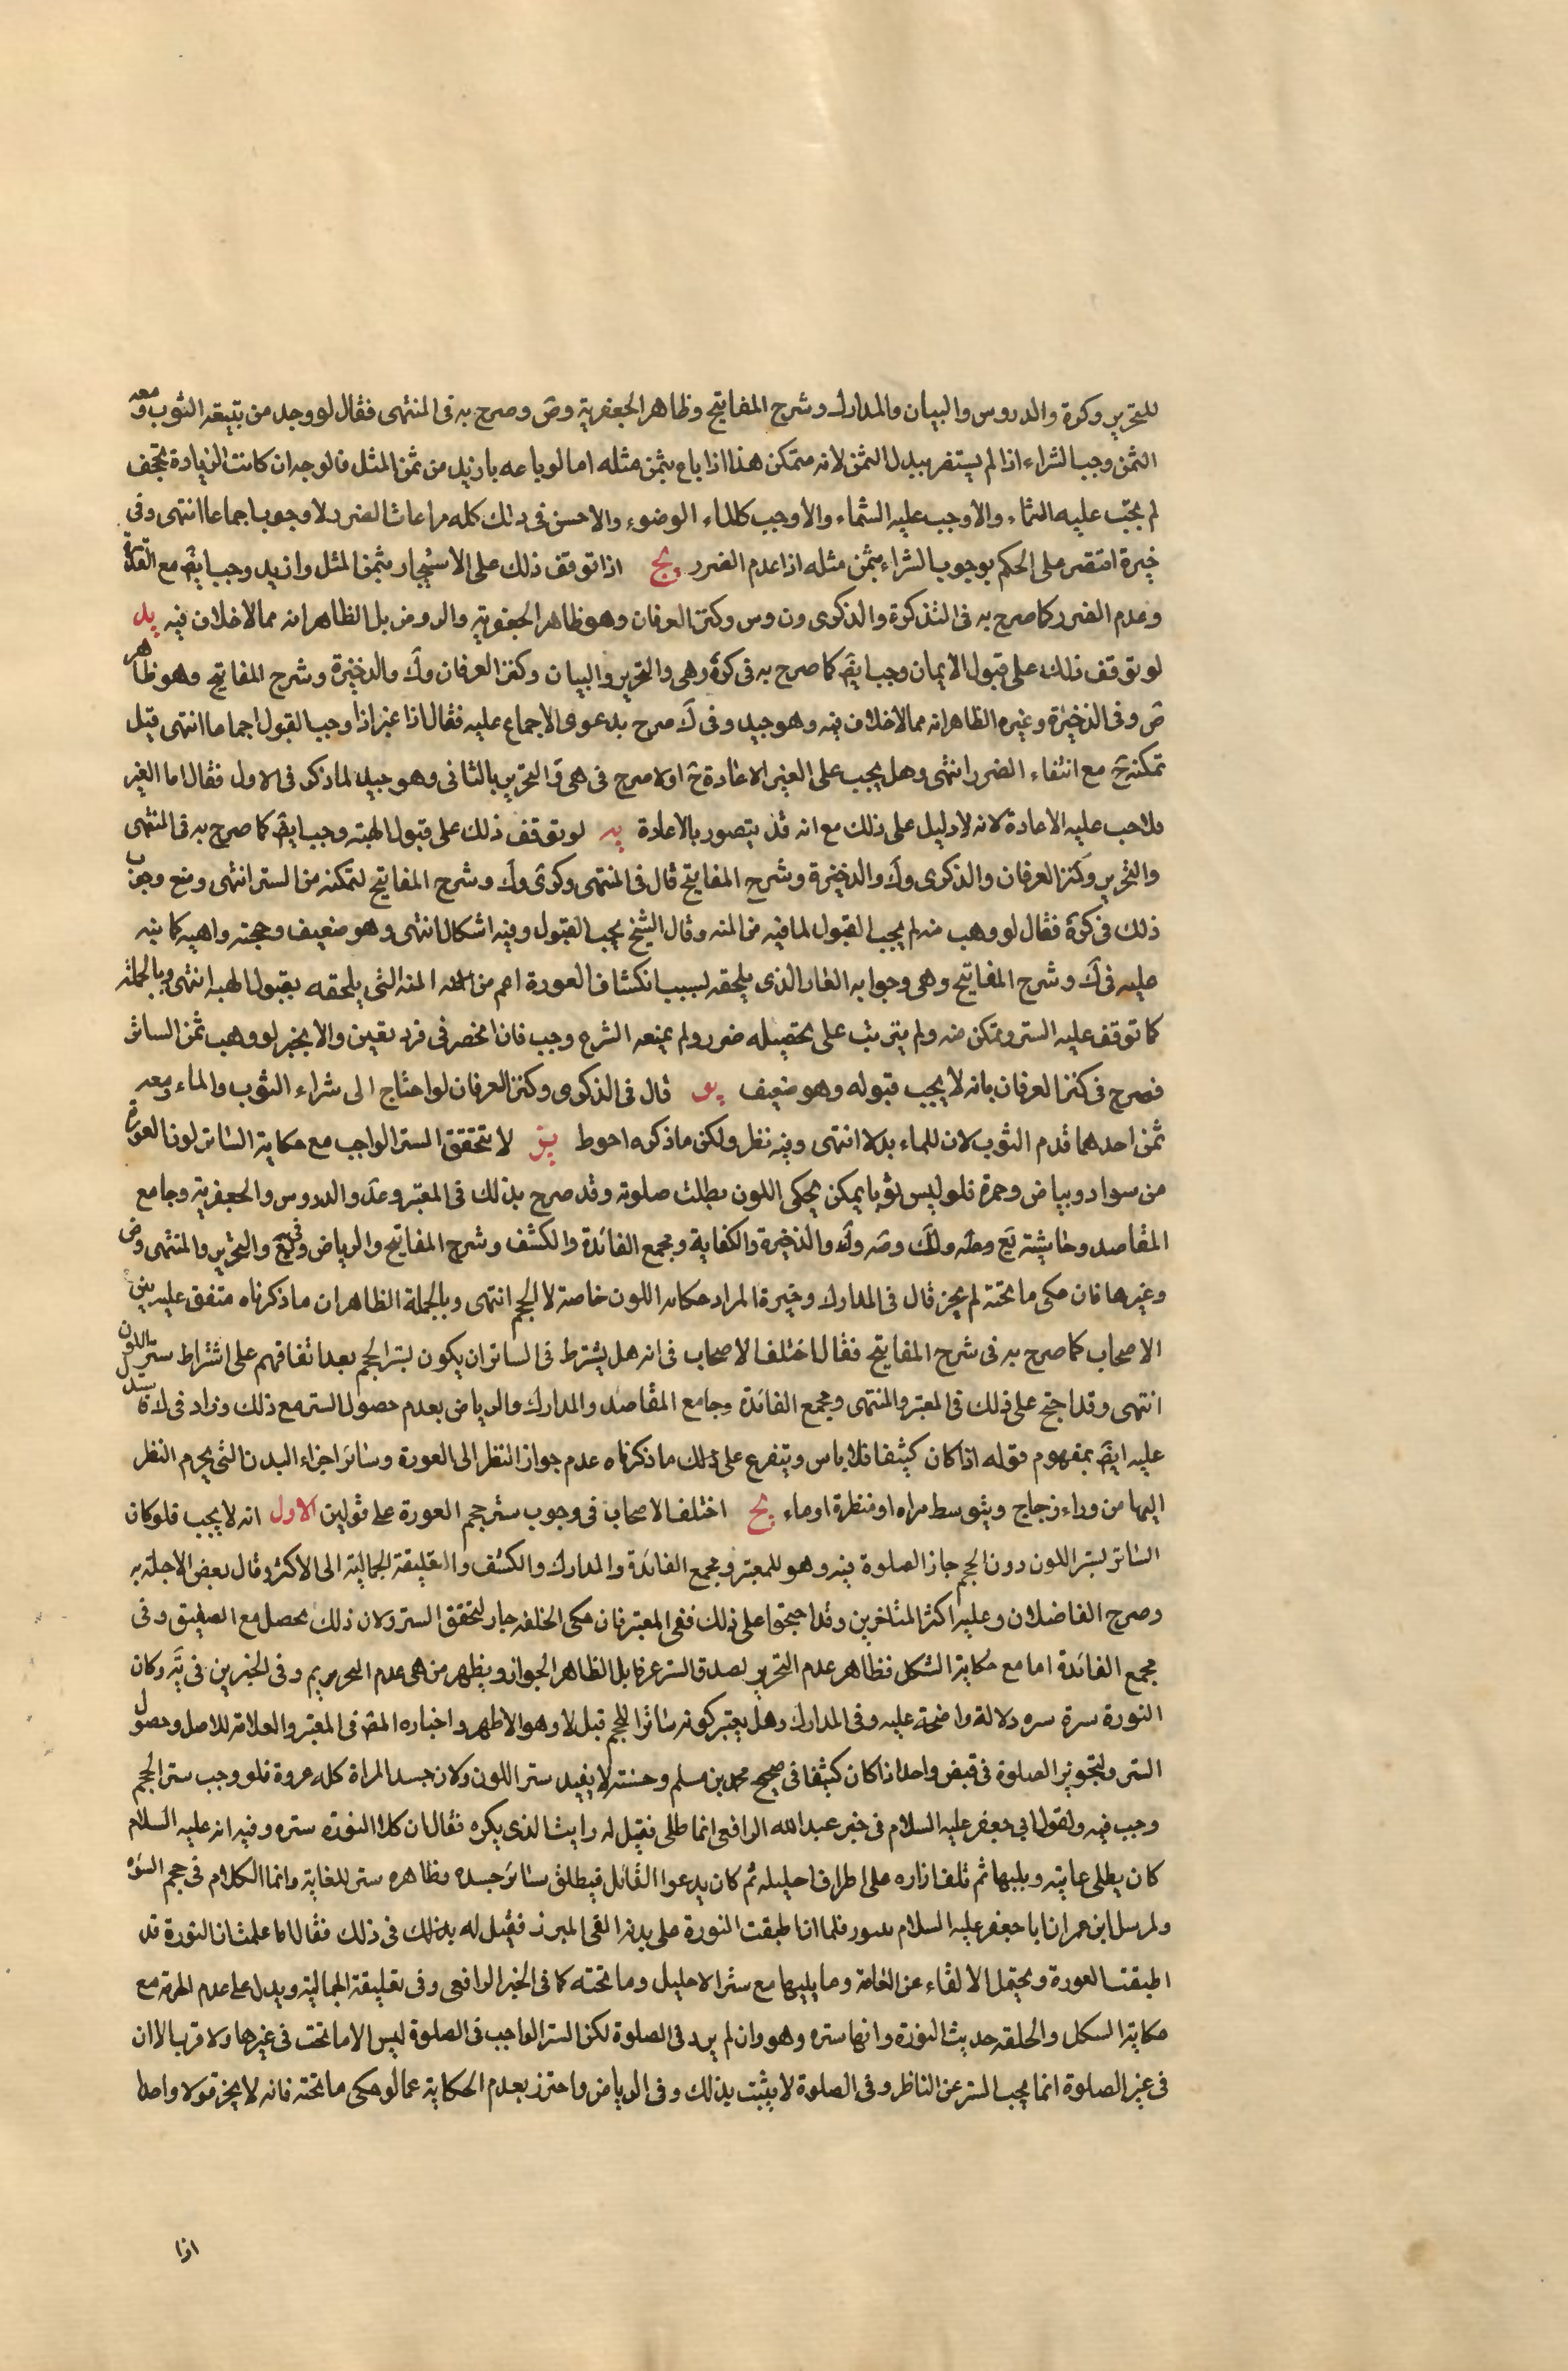 للتحرير وكرة والدروس والبيان والمدارك وشرح المفاتيح وظاهر الجعفرية وض وصرح به فى المنتهى فقال لو وجد من يبيعه الثوب ومعه
الثمن وجب الشراء اذا لم يستضر ببدل الثمن لانه متمكن هذا اذا باع بثمن مثله اما لو باعه بازيد من ثمن المثل فالوجه ان كانت الزيادة تجحف
لم يجب عليه الشراء والا وجب عليه الشراء والاوجب كالماء الوضوء والاحسن فى ذلك كله مراعات الضرر لا وجوب اجماعا انتهى وفى
خيرة اقتصر على الحكم بوجوب الشراء بثمن مثله اذا عدم الضرر يج اذا توقف ذلك على الاستيجار بثمن المثل وازيد وجب ايض مع القدرة
وعدم الضرر كما صرح به فى التذكرة والذكرى ون وس وكنز العرفان وهو ظاهر الجعفرية والروض بل الظاهر انه مما لاخلاف فيه يد
لو توقف ذلك على قبول الايمان وجب ايض كما صرح به فى كرة وهى والتحرير والبيان وكنز العرفان وك والذخيرة وشرح المفاتيح وهو ظاهر
ض وفى الذخيرة وغيره الظاهر انه مما لاخلاف فيه وهو جيد وفى ك صرح بدعوى الاجماع عليه فقال اذا عير اذا وجب القبول اجماعا انتهى قيل
تمكنه ح مع انتفاء الضرر انتهى وهل يجب على الغير الاعادة ح اولا صرح فى هى والتحرير بالثانى وهو جيد لما ذكر فى الاول فقال اما الغير
فلا يجب عليه الاعادة لانه لا دليل على ذلك مع انه قد يتصور بالاعادة يه لو توقف ذلك على قبول الهبة وجب ايض كما صرح به فى المنتهى
والتحرير وكنز العرفان والذكرى وك والذخيرة وشرح المفاتيح قال فى المنتهى وكرى وك وشرح المفاتيح لتمكنه من الستر انتهى ومنع وجوب
ذلك فى كرة فقال لو وهب منه لم يجب القبول لما فيه من المنه وقال الشيخ يجب القبول وفيه اشكال انتهى وهو ضعيف وحجته واهيه كما نبه
عليه فى ك وشرح المفاتيح وهى وجوابه العار الذى يلحقه لسبب انكشاف العورة اعم من المنه التى يلحقه بقبول الهبه انتهى وبالجمله
كلما توقف عليه الستر ويمكن منه ولم يترتب على تحصيله ضرر ولم يمنعه الشرع وجب فان انحصر فى فرد تعين والا يخير لو وهب ثمن الساتر
فصرح فى كنز العرفان بانه لا يجب قبوله وهو ضعيف يو قال فى الذكرى وكنز العرفان لو احتاج الى شراء الثوب والماء ومعه
ثمن احدهما قدم الثوب لان للماء بدلا انتهى وفيه نظر ولكن ما ذكره احوط يز لا يتحقق الستر الواجب مع حكاية الساتر لون العورة
من سواد وبياض وحمرة فلو لبس ثوبا يمكن يحكى اللون بطلت صلوته وقد صرح بذلك فى المعتبر وعد والدروس والجعفرية وجامع
المقاصد وحاشيته يع وضه ولك وصه وك والذخيرة والكفاية ومجمع الفائدة والكشف وشرح المفاتيح والرياض وفى يع والتحرير والمنتهى وض
وغيرها فان حكى ما تحته لم يجز قال فى المدارك وخيرة المراد حكاية اللون خاصة لا الحجم انتهى وبالجملة الظاهر ان ما ذكرناه متفق عليه بين
الاصحاب كما صرح به فى شرح المفاتيح فقال اختلف الاصحاب فى انه هل يشترط فى الساتر ان يكون يستر الحجم بعد اتفاقهم على اشتراط ستر اللون
انتهى وقد احتج على ذلك فى المعتبر والمنتهى ومجمع الفائدة وجامع المقاصد والمدارك والرياض بعدم حصول الستر مع ذلك وزاد فى لا
عليه ايض بمفهوم قوله اذا كان كثيفا فلا باس ويتفرع على ذلك ما ذكرناه عدم جواز النظر الى العورة وسائر اجزاء البدن التى يحرم النظر
اليها من وراء زجاج وبتوسط مراه او منظرة او ماء يح اختلف الاصحاب فى وجوب ستر حجم العورة على قولين الاول انه لا يجب فلو كان
الساتر يستر اللون دون الحجم جاز الصلوة فيه وهو للمعتبر ومجمع الفائدة والمدارك والكشف والتعليقة الجمالية الى الاكثر وقال بعض الاجلة به
وصرح الفاضلان وعليه اكثر المتاخرين وقد احتجوا على ذلك ففى المعتبر فان حكى الخلقه جاز لتحقق الستر ولان ذلك يحصل مع الصفيق وفى
مجمع الفائدة اما مع حكاية الشكل فظاهر عدم التحرير لصدق الستر عرفا بل الظاهر الجواز ويظهر من هى عدم التحريم وفى الخبرين فى يه وكان
النورة سترة ستره دلالة واضحة عليه وفى المدارك وهل يعتبر كونه ساترا للحجم قيل لا وهو الاظهر واختاره المص فى المعتبر والعلامة للاصل وحصول
الستر ولتجويز الصلوة فى قميص واحد اذا كان كثيفا فى صحيح محمد بن مسلم وحسنته لا يفيد ستر اللون ولان جسد المراة كله عورة فلو وجب ستر الحجم
وجب فيه ولقول ابى جعفر عليه السلام فى خبر عبد الله الرافعى انما طلى فقيل له رايت الذى يكره فقال ان كلا النورة ستره وفيه انه عليه السلام
كان يطلى عانته ويليها ثم يلف ازاره على اطراف احليله ثم كان يدعوا القائل فيطلى سائر جسده وظاهره ستر للغاية وانما الكلام فى حجم السؤة
ولمرسل ابن عمران ابا جعفر عليه السلام تنور فلما ان اطبقت النورة على بدنه القى الميزر فقيل له بذلك فى ذلك فقال اما علمت ان النورة قد
اطبقت العورة ويحتمل الالقاء عن العانة وما يليها مع ستر الاحليل وما تحته كما فى الخبر الرافعى وفى تعليقة الجمالية ويدل على عدم الحرمة مع
حكاية الشكل والخلقه حديث النورة وانها ستره وهو وان لم يرد فى الصلوة لكن الستر الواجب فى الصلوة ليس الا ما تحت فى غيرها ولا قرب الا ان
فى غير الصلوة انما يجب الستر عن الناظر وفى الصلوة لا يثبت بذلك وفى الرياض واحترز بعدم الحكاية عما لو حكى ما تحته فانه لا يجز قولا واحدا
اذا